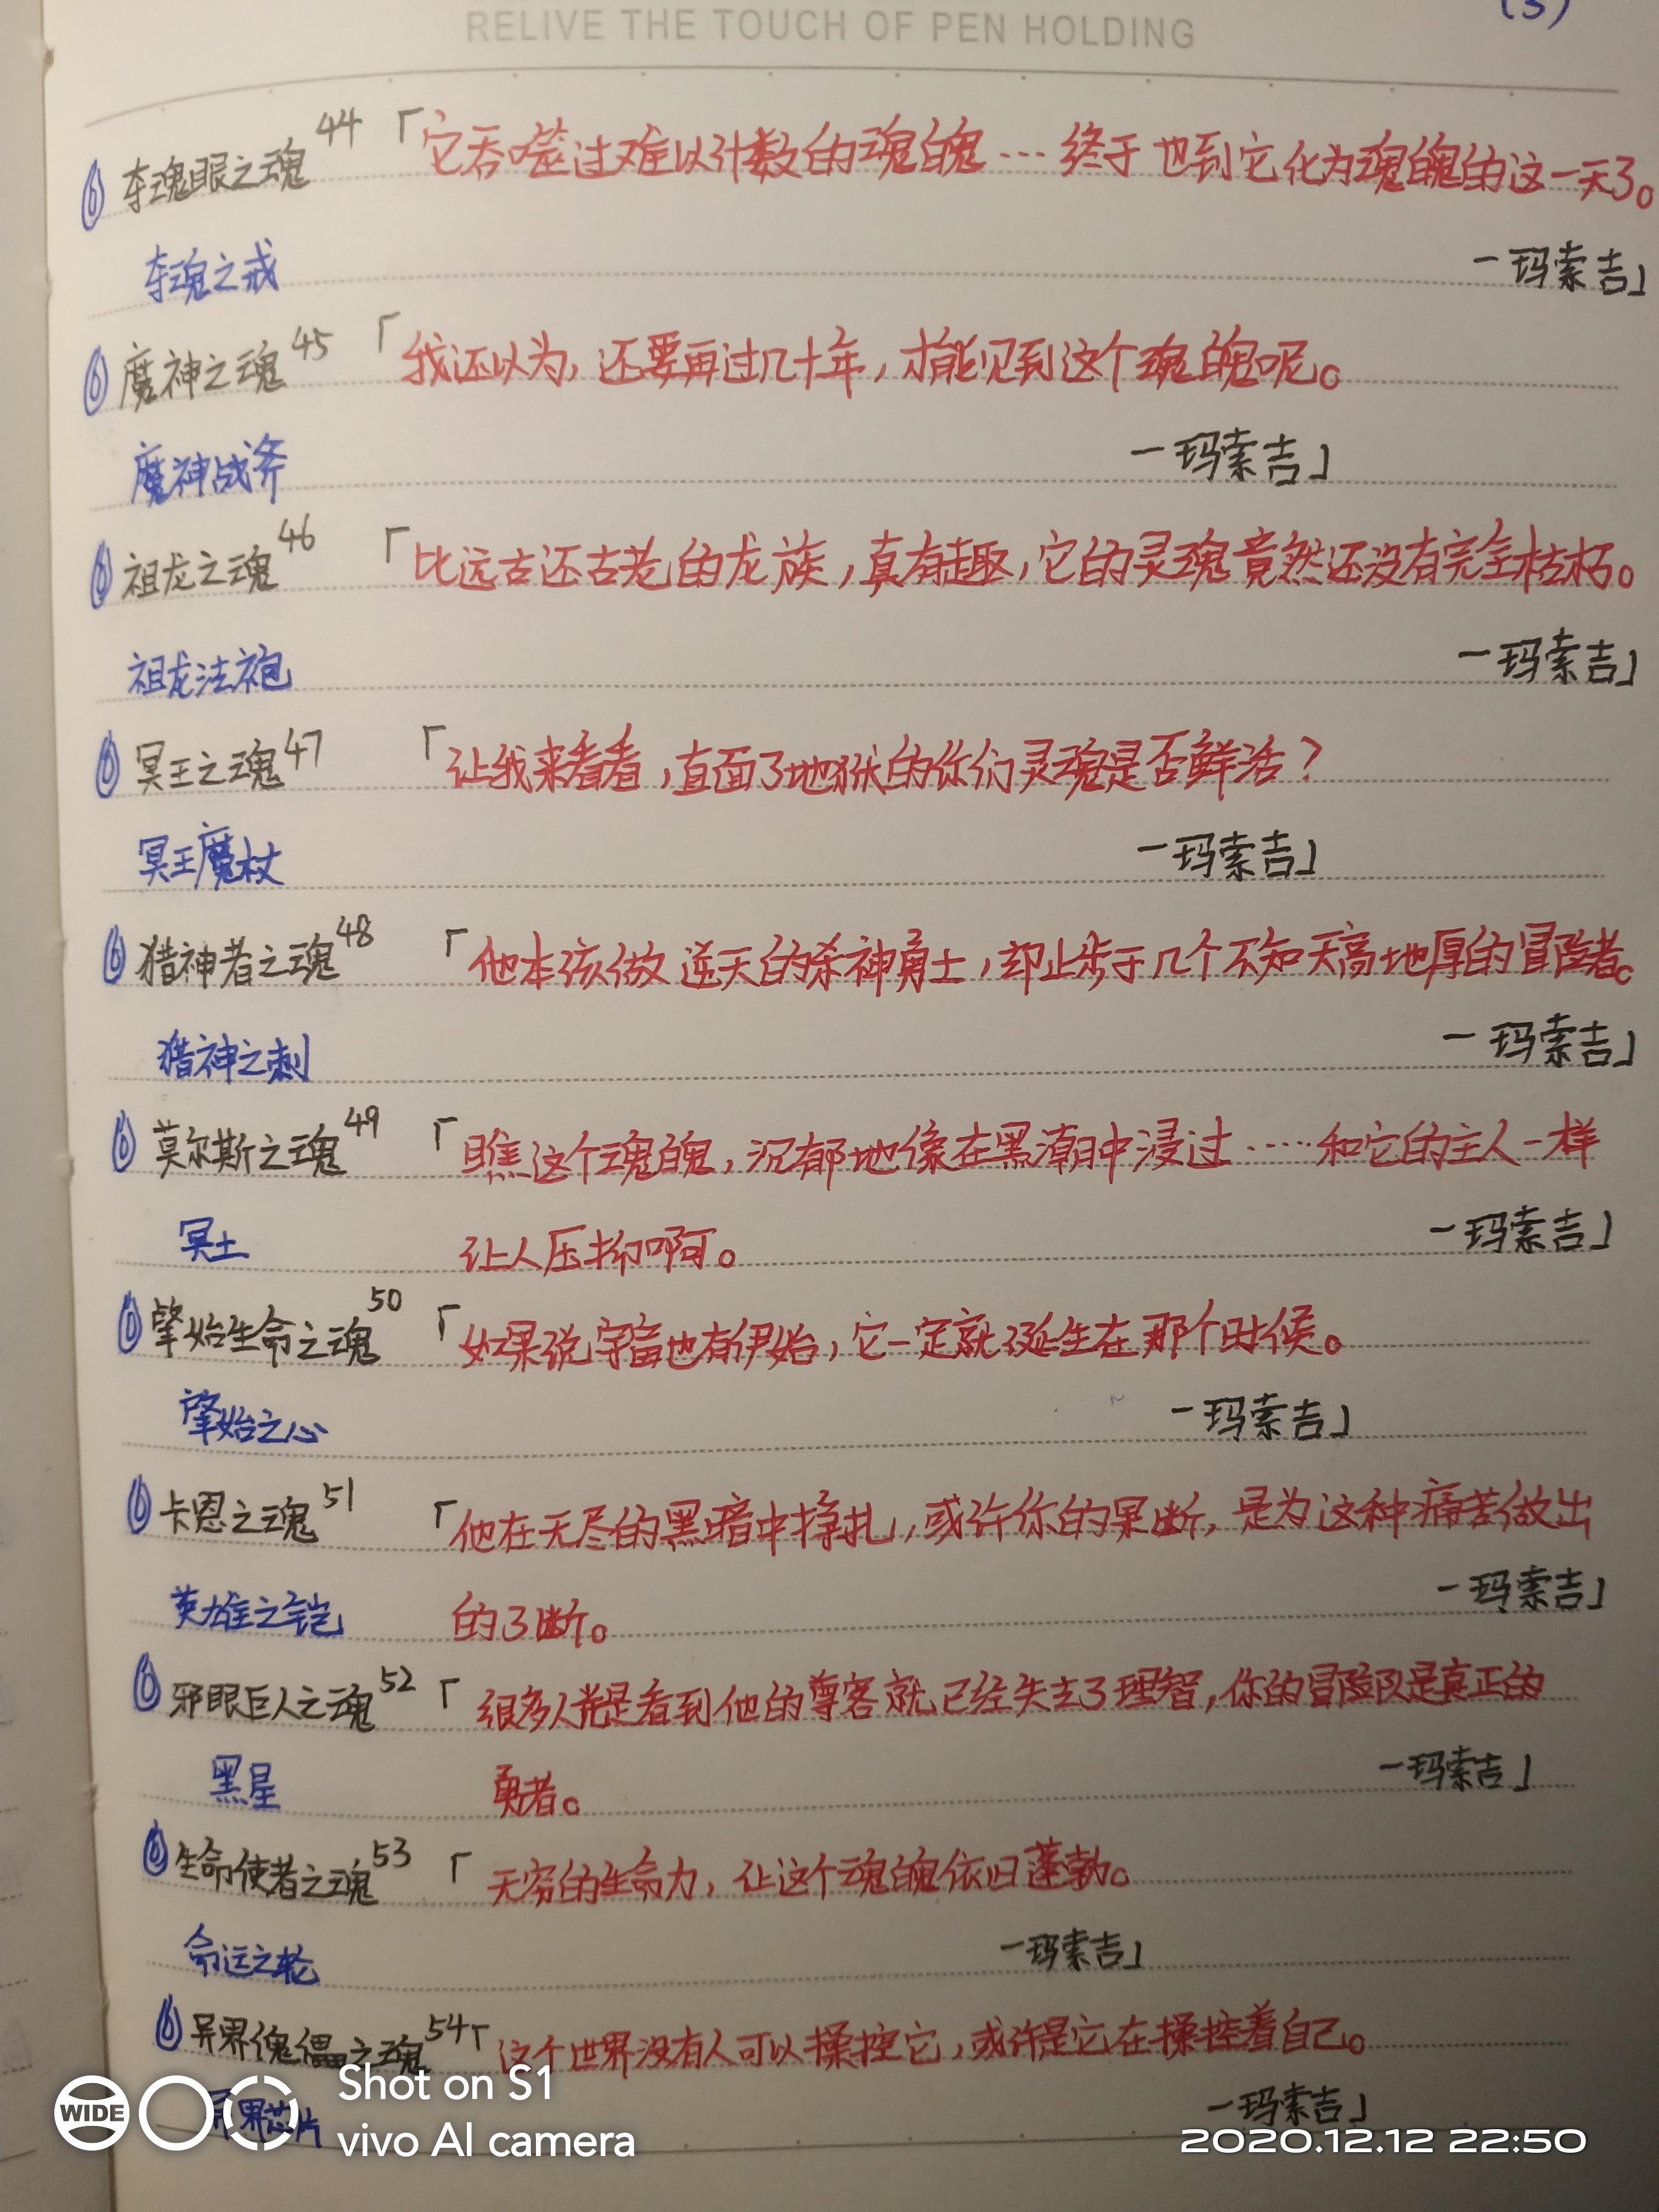 RELIVE THE TOUCH OF PEN HOLDING
(3)
夺魂眼之魂44「它吞噬过难以计数的魂魄…终于也到它化为魂魄的这一天了。
夺魂之戒 —玛索吉」
魔神之魂45「我还以为,还要再过几十年,才能见到这个魂魄呢。
魔神战斧 —玛索吉」
祖龙之魂46「比远古还古老的龙族,真有趣,它的灵魂竟然还没有完全枯朽。
祖龙法袍 —玛索吉」
冥王之魂47「让我来看看,直面了地狱的你们灵魂是否鲜活?
冥王魔杖 —玛索吉」
猎神者之魂48「他本该做逆天的杀神勇士,却止步于几个不知天高地厚的冒险者。
猎神之刺 —玛索吉」
莫尔斯之魂49「瞧这个魂魄,沉郁地像在黑潮中浸过……和它的主人一样
冥土 让人压抑啊。 —玛索吉」
肇始生命之魂50「如果说宇宙也有伊始,它一定就诞生在那个时候。
肇始之心 —玛索吉」
卡恩之魂51「他在无尽的黑暗中挣扎,或许你的果断,是为这种痛苦做出
英雄之铠 的了断。 —玛索吉」
邪眼巨人之魂52「很多人光是看到他的尊容就已经失去了理智,你的冒险队是真正的
黑星 勇者。 —玛索吉」
生命使者之魂53「无穷的生命力,让这个魂魄依旧蓬勃。
命运之轮 —玛索吉」
异界傀儡之魂54「这个世界没有人可以操控它,或许是它在操控着自己。
异界芯片 —玛索吉」
WIDE
Shot on S1
vivo AI camera
2020.12.12 22:50